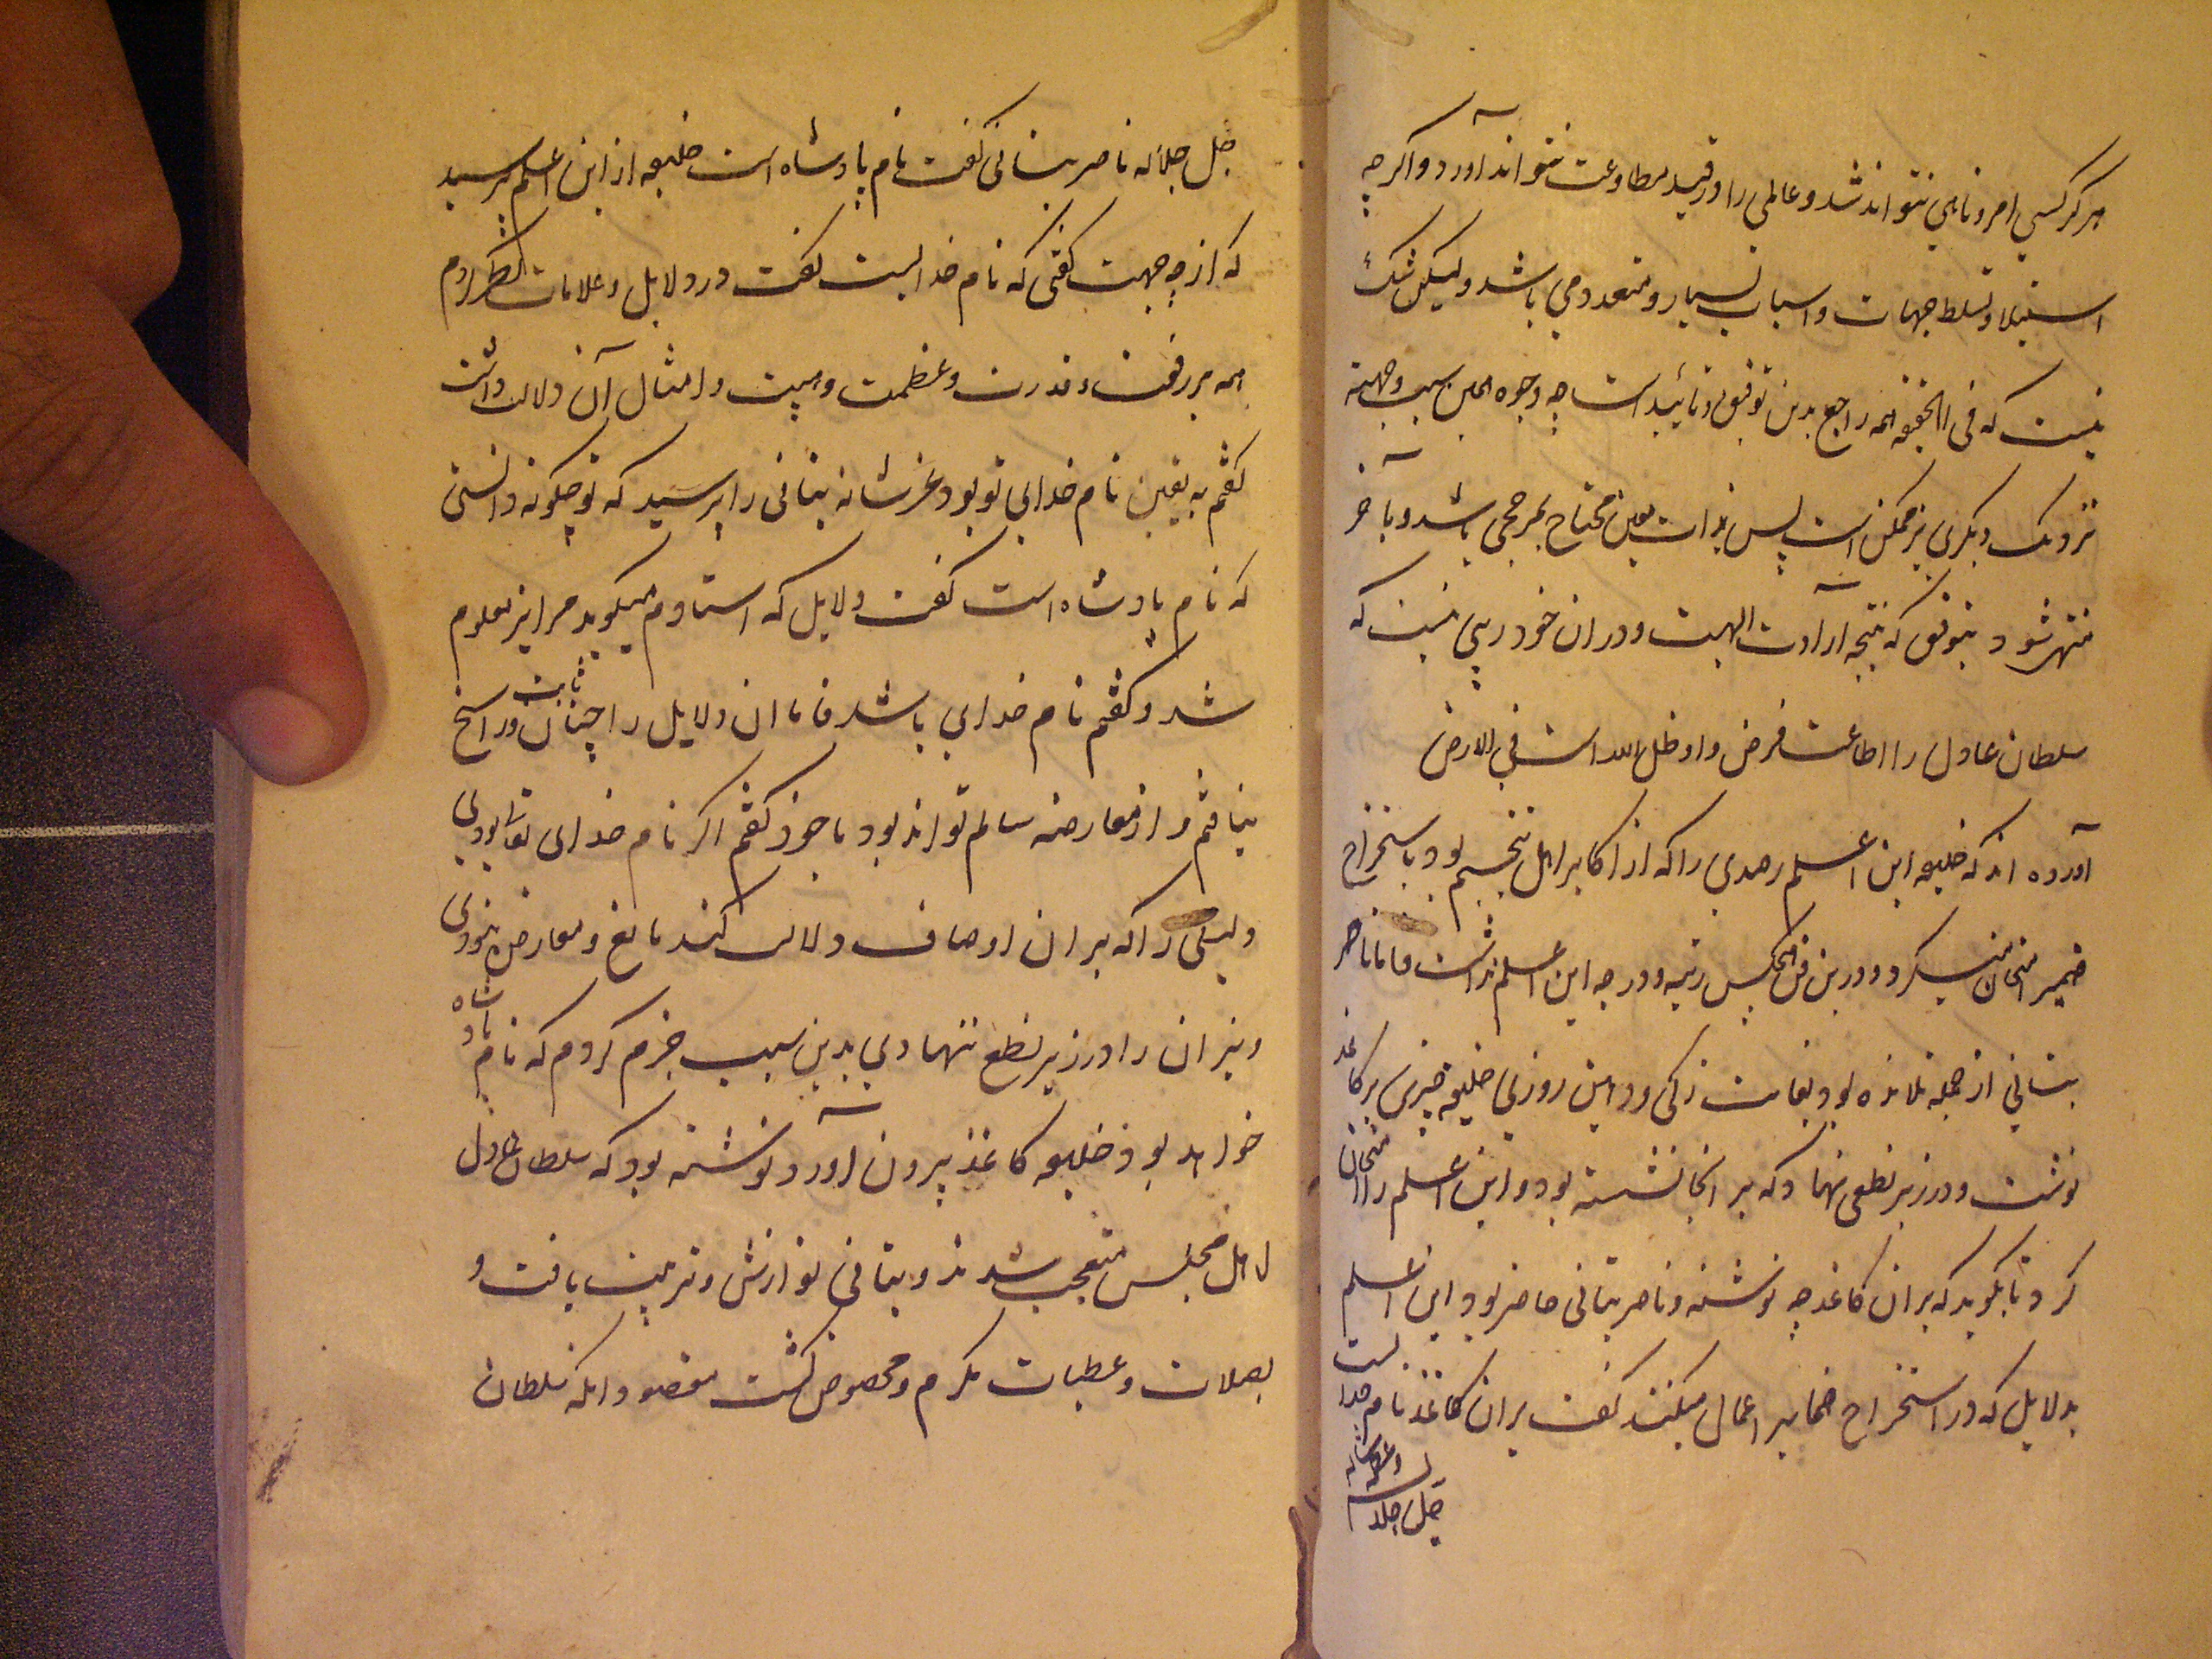 هرگز کسی امر و ناهی نتواند شد و عالمی را در قید مطاوعت نتواند آورد و اگرچه
استیلا و تسلط جهات و اسباب بسیار و متعدد می باشد و لیکن شک
نیست که فی الحقیقه همه راجع بدین توفیق و تائید است چه وجوه همین سبب و جهته
نزدیک دیگری نیز ممکن است پس بذات معین محتاج بمرجحی باشد و بآخر
منتهی شود بتوفیق که نتیجه ارادت الهیت و در ان خود ریبی نیست که
سلطان عادل را اطاعت فرض و او ظل الله است فی الارض
آورده اند که خلیفه ابن اعلم رصدی را که از اکابر اهل تنجیم بود باستخراج
ضمیر امتحان میکرد و درین فن هیچکس رتبه و درجه ابن اعلم نداشت فاما ناصر
بتانی از جمله تلامذه بود بغایت زکی و دامین روزی خلیفه چیزی بر کاغذ
نوشت و در زیر نطعی نهاد که بر انجا نشسته بود و ابن اعلم را امتحان
کرد تا بگوید که بران کاغذ چه نوشته و ناصر بتانی حاضر بود ابن اعلم
بدلایل که در استخراج ضمایر اعمال میکنند گفت بران کاغذ نام خدایست
جل جلاله
جل جلاله ناصر بتانی گفت نام پادشاه است خلیفه از ابن اعلم پرسید
که از چه جهت گفتی که نام خدایست گفت در دلایل و علامات نظر کردم
همه بر رفعت و قدرت و عظمت و هیبت و امثال آن دلالت داشت
گفتم به یقین نام خدای تو بود عز شانه بتانی را پرسید که تو چگونه دانستی
که نام پادشاه است گفت دلایل که استادم میگوید مرا نیز معلوم
شد و گفتم نام خدای باشد فاما ان دلایل را چنان ثابت و راسخ
نیافتم و از معارضه سالم تواند بود با خود گفتم اگر نام خدای تعالی بودی
دلیلی را که بر ان اوصاف دلالت کند مانع و معارض نبودی
و نیز ان را در زیر نطع ننهادی بدین سبب جزم کردم که نام پادشاه
خواهد بود خلیفه کاغذ بیرون آورد نوشته بود که سلطان عادل
اهل مجلس متعجب شدند و بتانی نوازش و تربیت یافت و
بصلات و عطیات مکرم و مخصوص گشت مقصود انکه سلطان